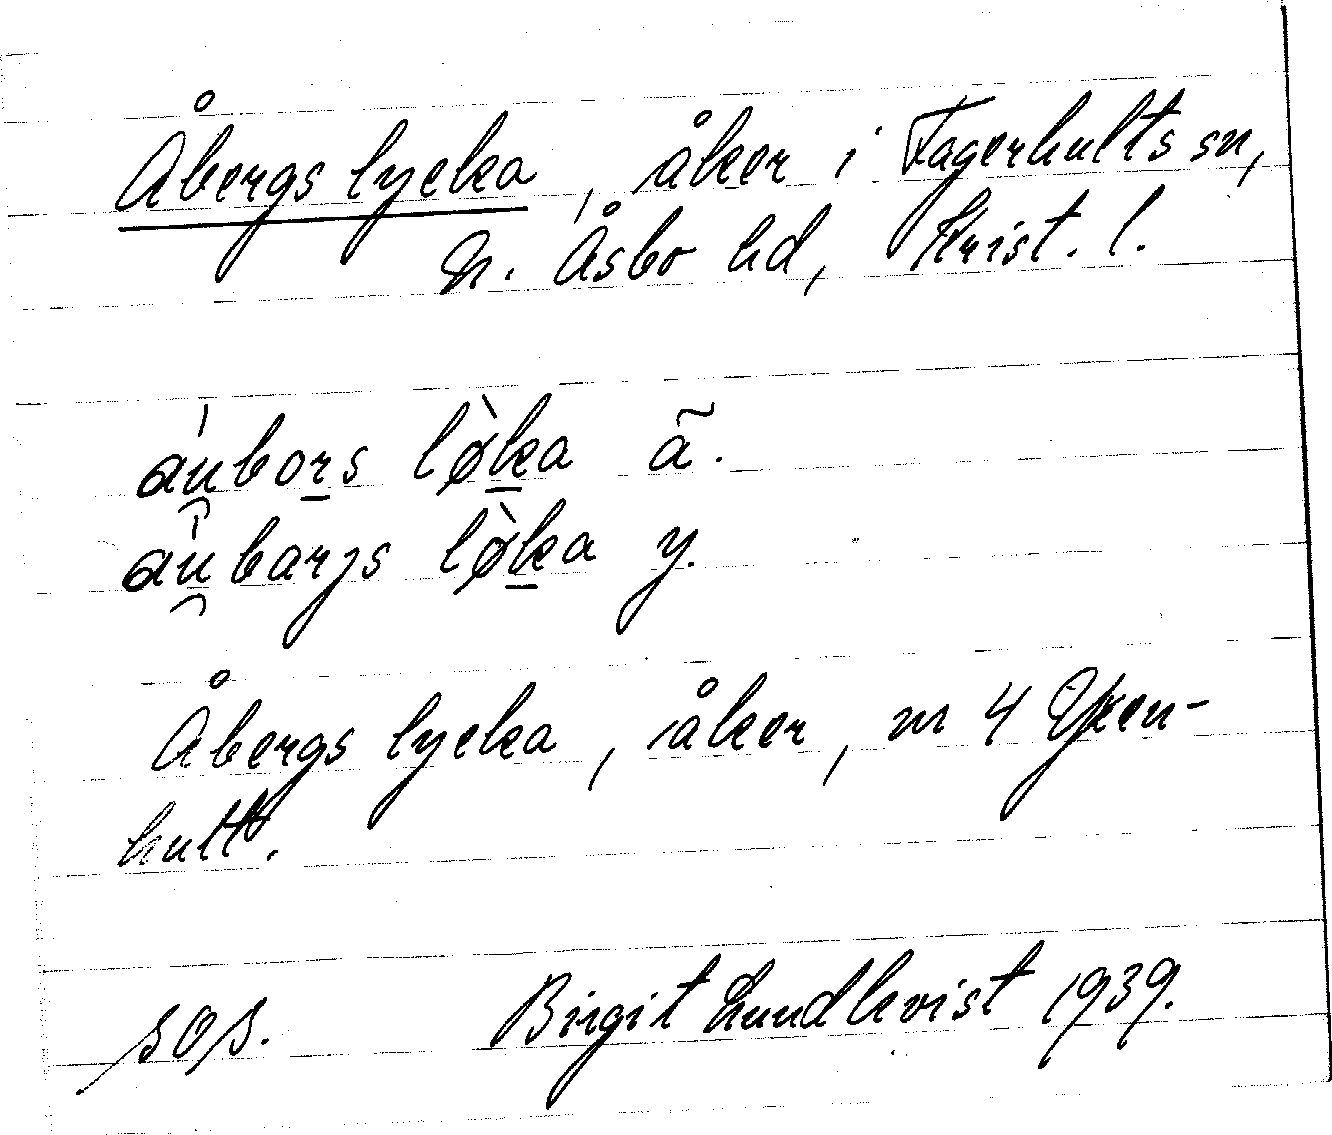 Åbergs lycka, åker i Fagerhults sn,
N. Åsbo hd, Krist. l.
áu̯bors lø̀ka ã.
áu̯barjs lø̀ka y.
Åbergs lycka, åker, nr 4 Yxen-
hult.
sos. Birgit Lundkvist 1939.